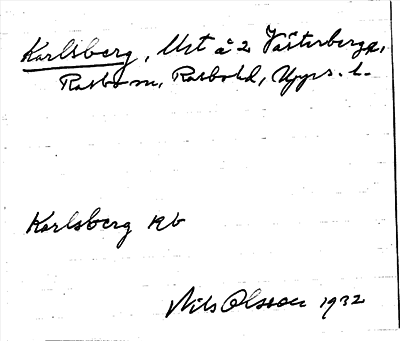 Karlsberg, Urt å 2 Västerberga,
Rasbo sn, Rasbo hd, Upps. l.
Karlsberg Rb
Nils Olsson 1932